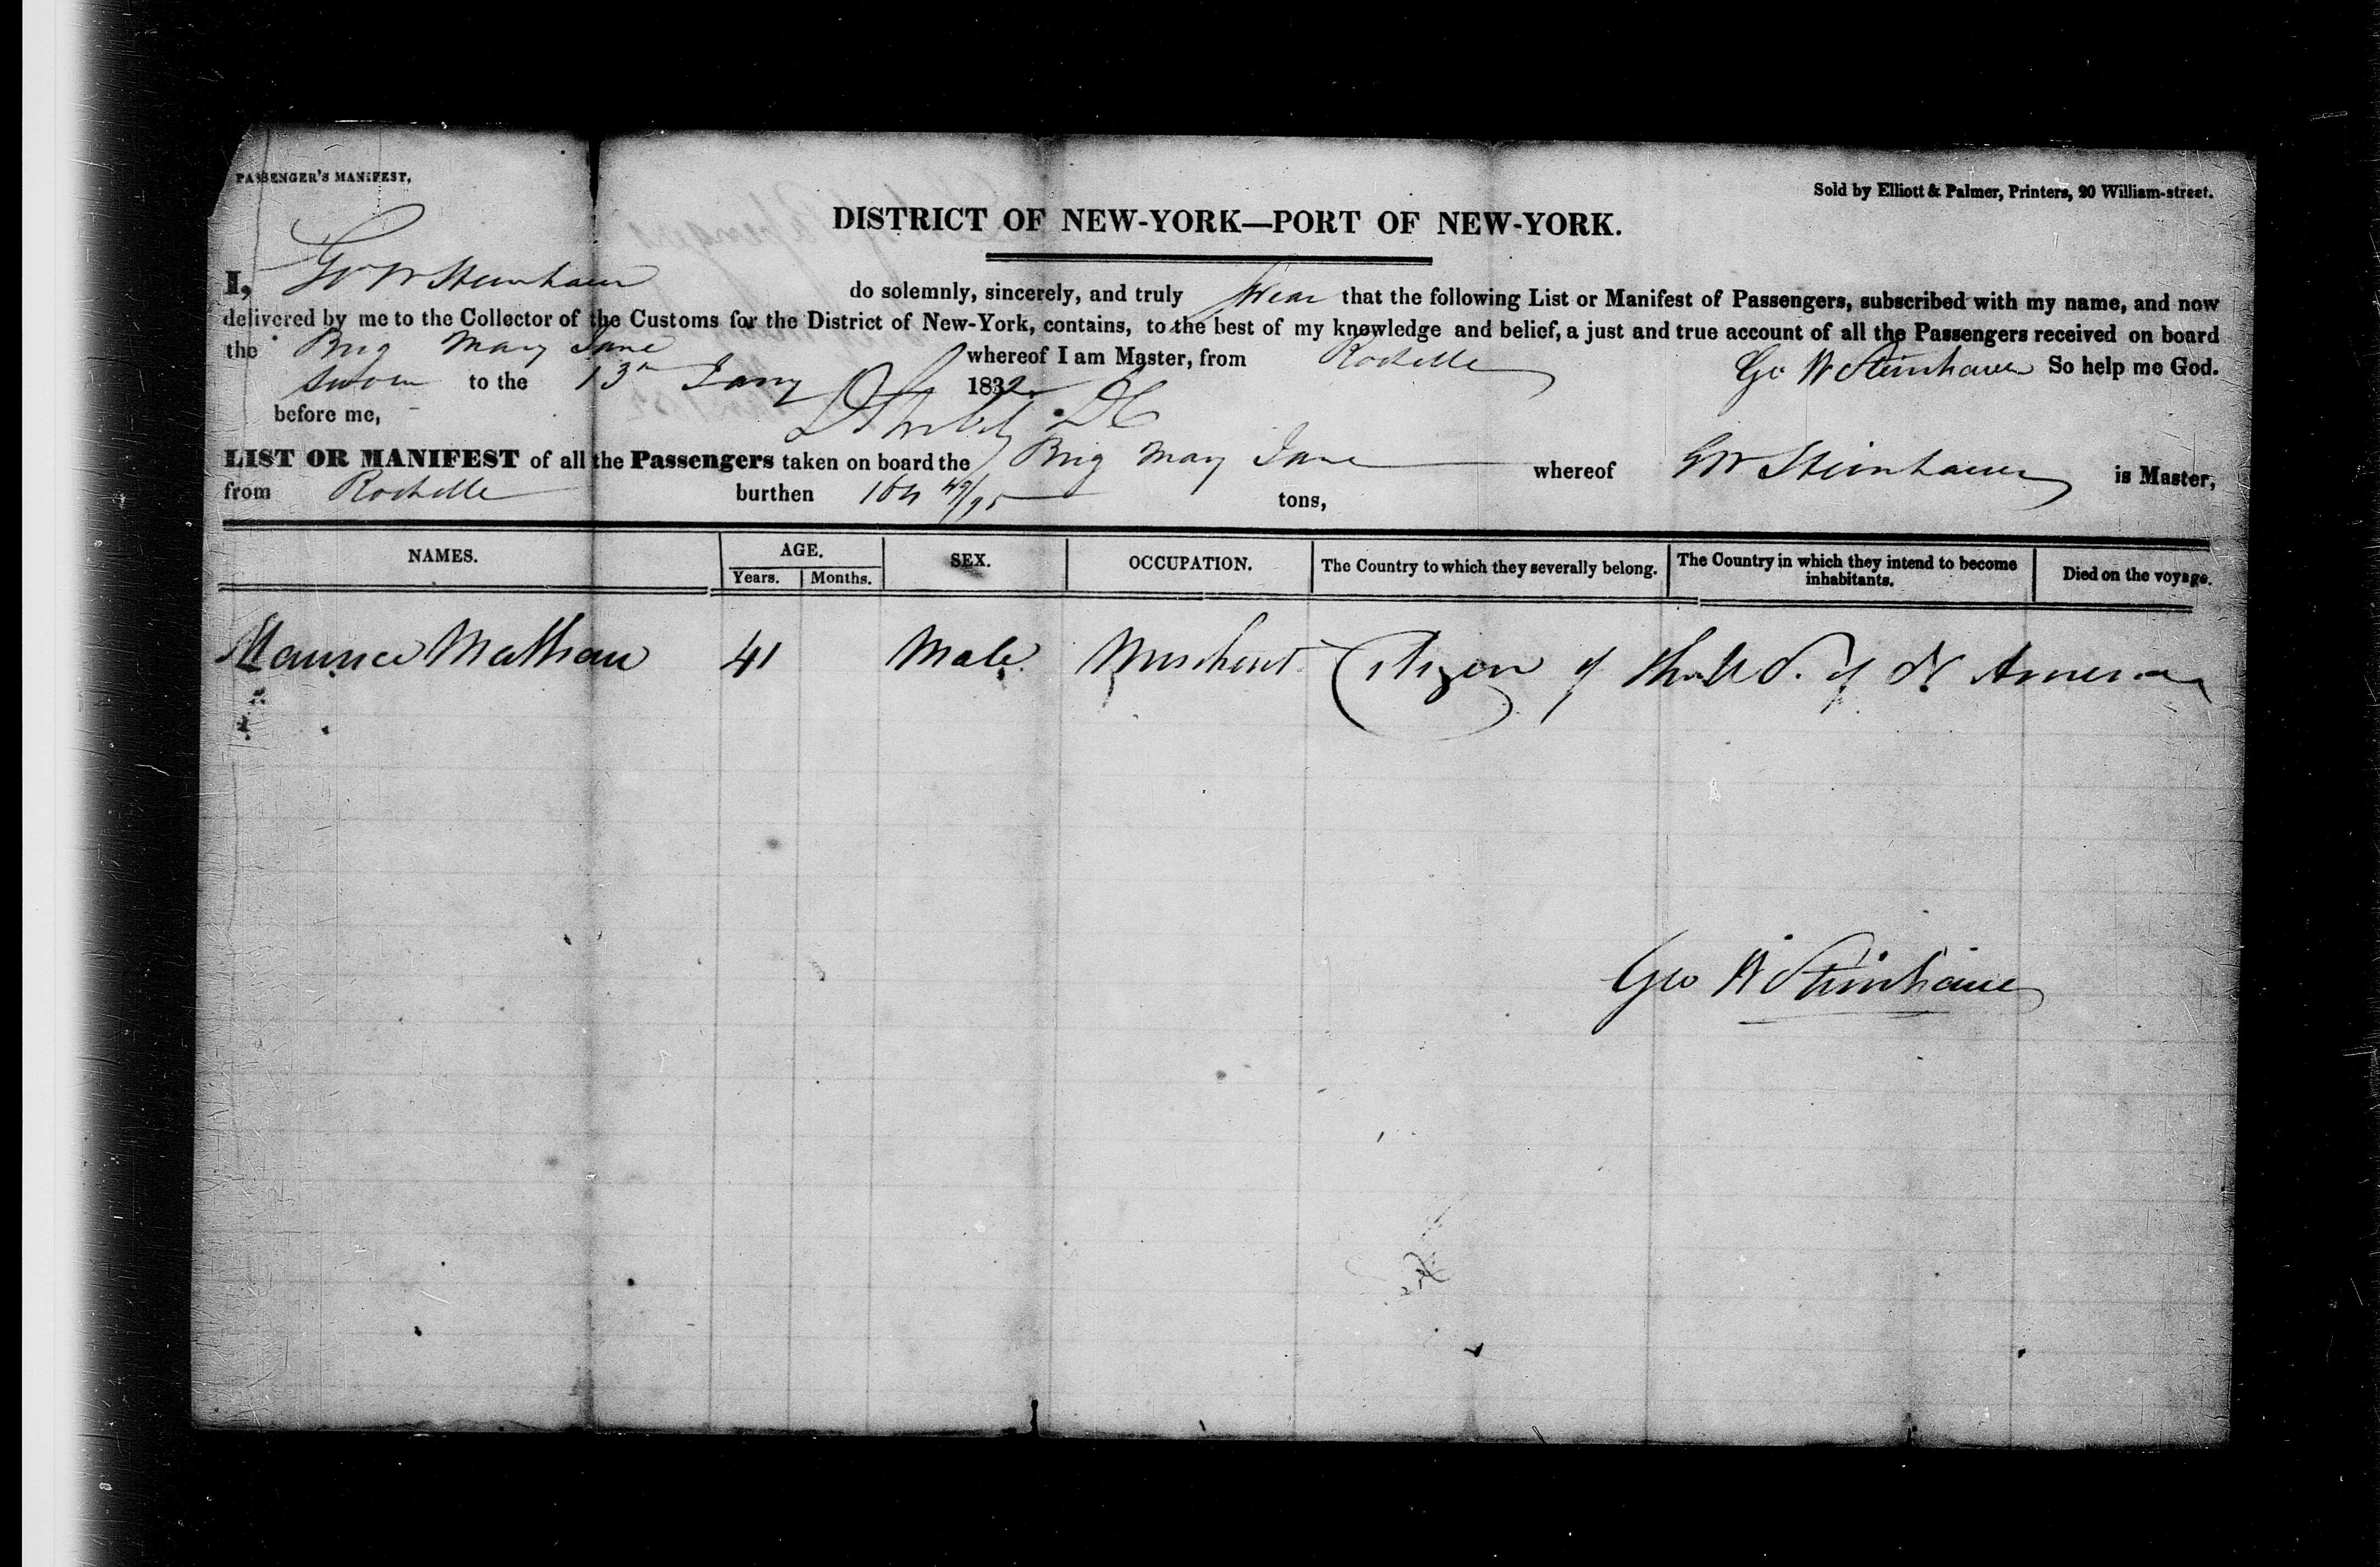 PASSENGER'S MANIFEST,
Sold by Elliott & Palmer, Printers, 20 William-street.
DISTRICT OF NEW-YORK—PORT OF NEW-YORK.
I, Geo W Steinhauer do solemnly, sincerely, and truly swear that the following List or Manifest of Passengers, subscribed with my name, and now
delivered by me to the Collector of the Customs for the District of New-York, contains, to the best of my knowledge and belief, a just and true account of all the Passengers received on board
the Brig Mary Jane whereof I am Master, from Rochelle So help me God.
Geo W Steinhauer
sworn to the 13th Jany 1832
before me,
LIST OR MANIFEST of all the Passengers taken on board the Brig Mary Jane whereof GW Steinhauer is Master,
from Rochelle burthen 164 49/95 tons,
NAMES. AGE. SEX. OCCUPATION. The Country to which they severally belong. The Country in which they intend to become inhabitants. Died on the voyage.
Years. Months.
Maurice Mathieu 41 Male Merchant Citizen of the U S. of N America
Geo W Steinhauer